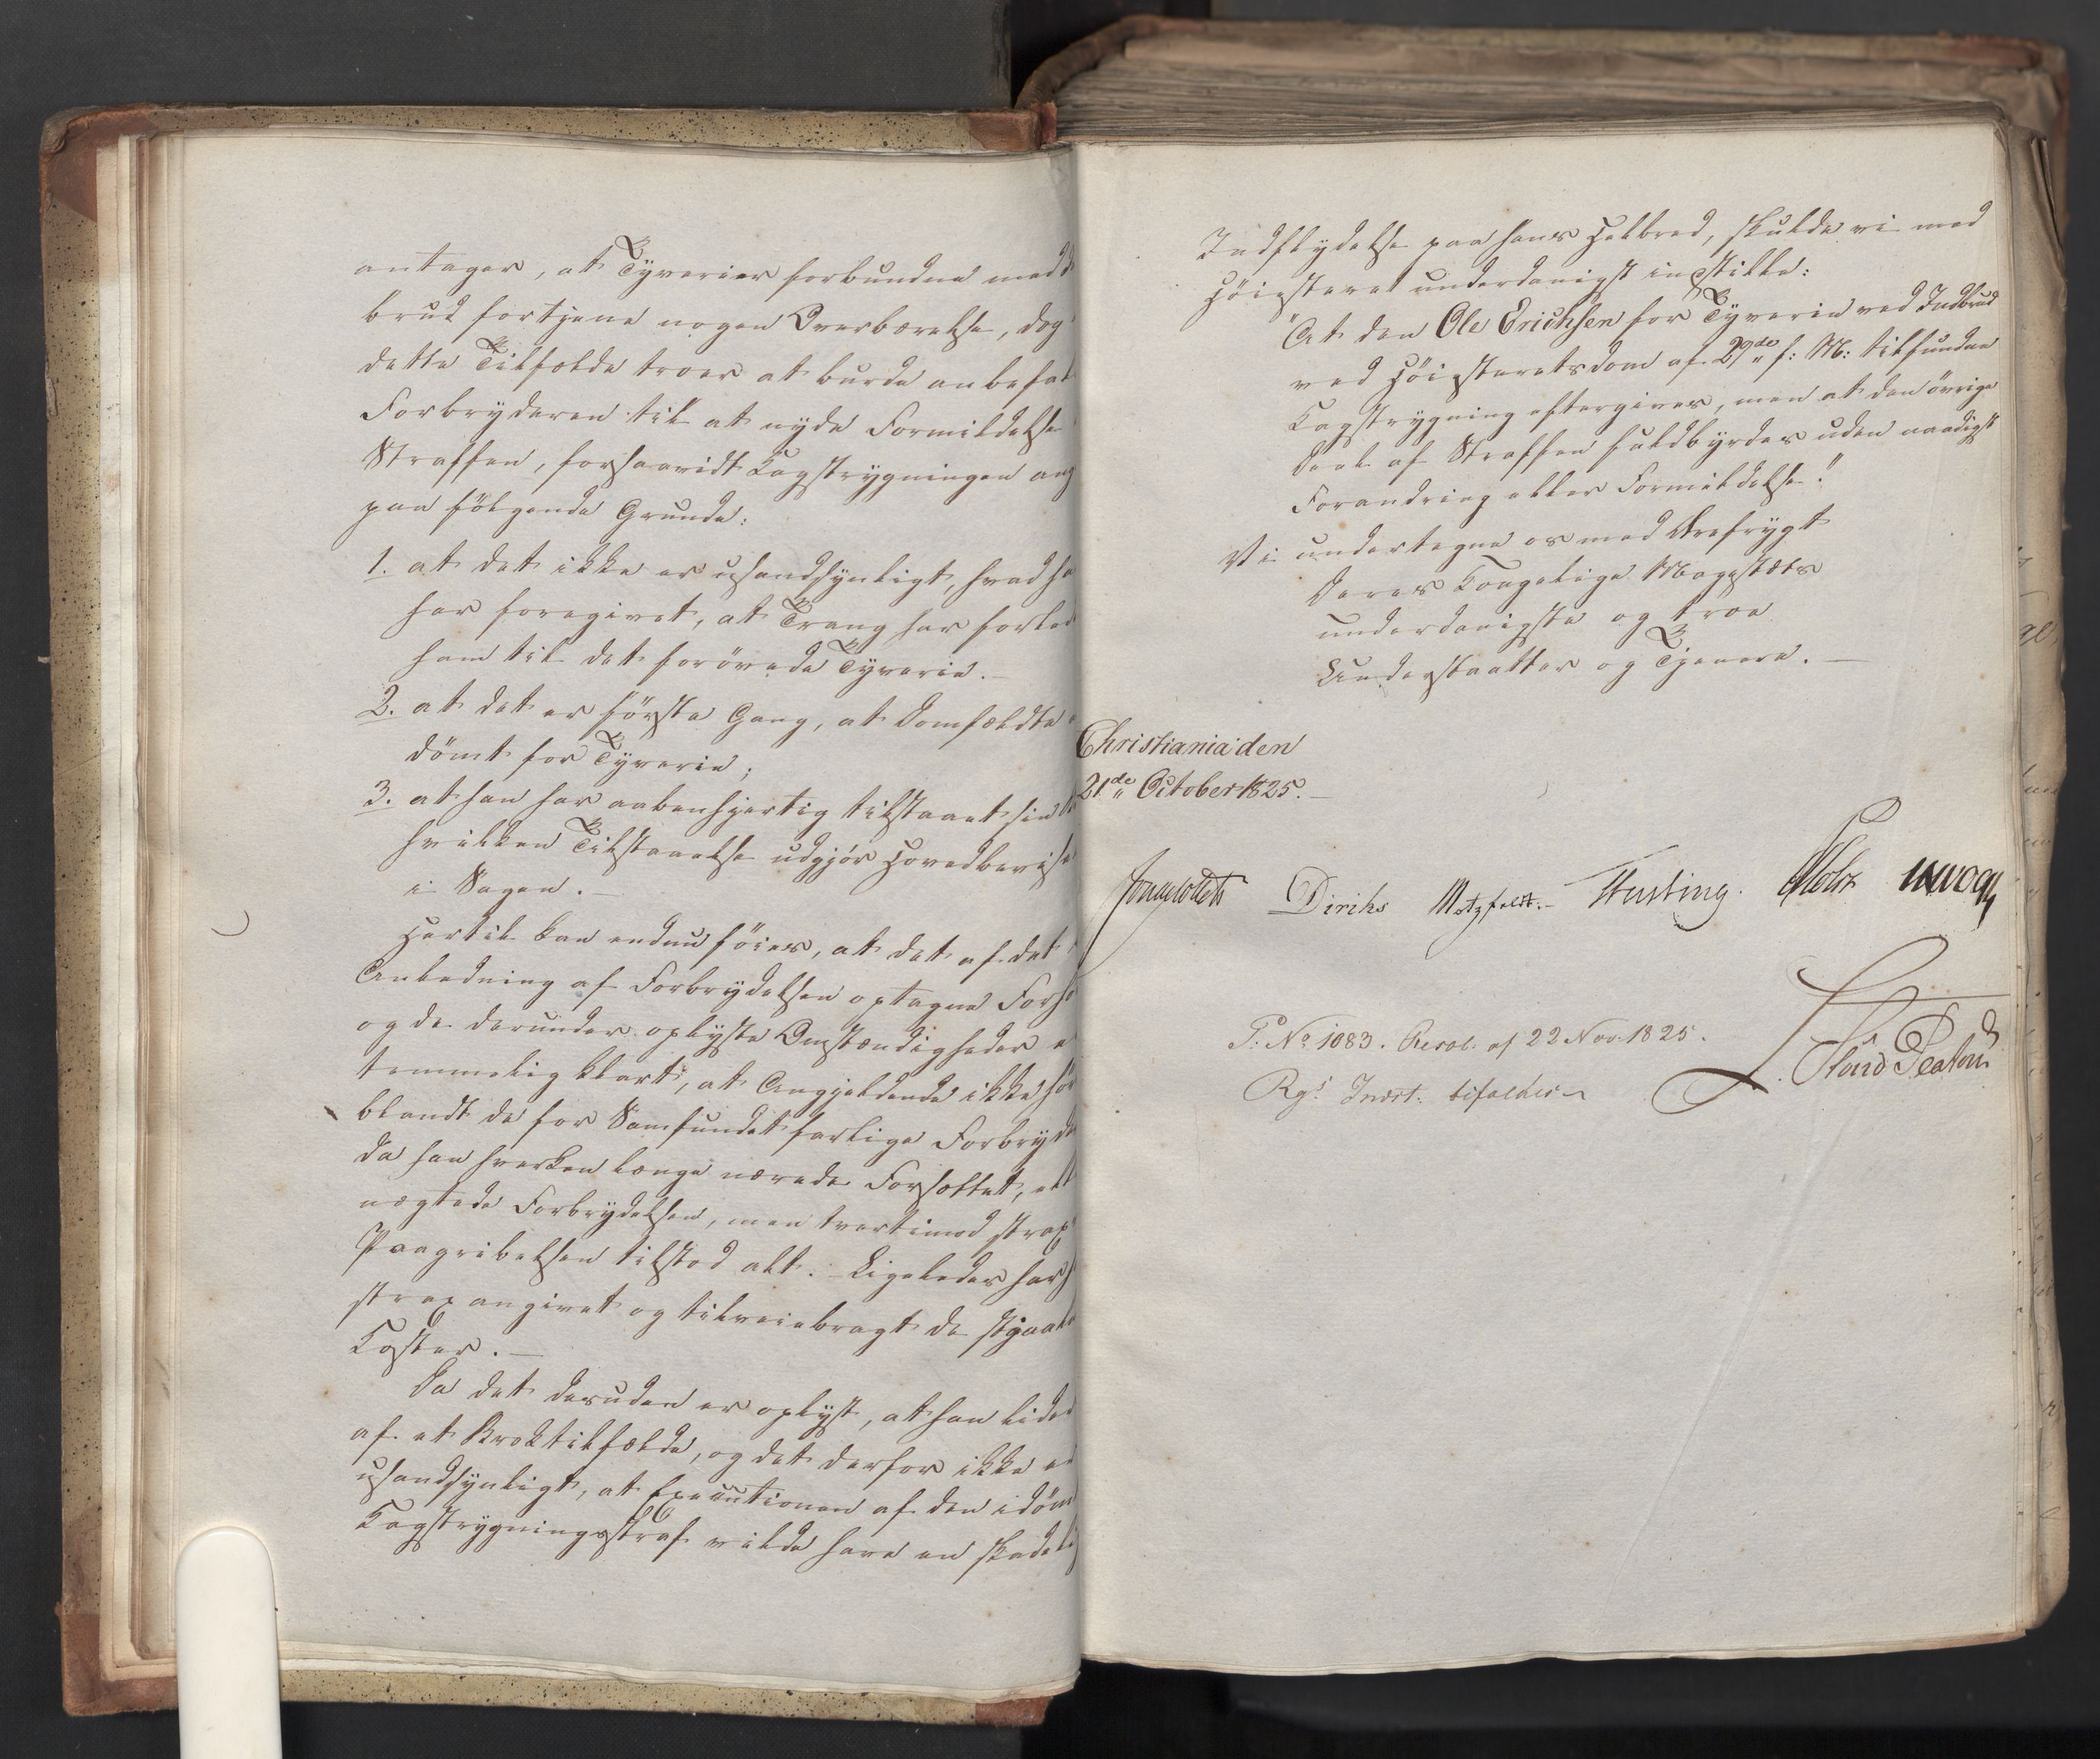 antager, at Tyverier forbundne med
brud fortjene nogen Overbærelse, dog
dette Tilfælde troer at burde anbefal
Forbryderen til at nyde Formildelse
Straffen, forsaavidt Kagstrygningen ang
paa følgende Grunde:
1. at det ikke er usandsynligt, hvad ha
har foregivet, at Trang har forled
ham til det forøvede Tyverie.
2. at det er første Gang, at Domfældte
dömt for Tyverie;
3. at han har aabenhjertig tilstaaet sin
hvilken Tilstaaelse udgjör Hovedbevise
i Sagen.
Hertil kan endnu föies, at det af det
Anledning af Forbrydelsen optagne Forhö
og de derunder oplyste Omstændigheder e
temmelig klart, at Angjeldende ikke hör
blandt de for Samfundet farlige Forbryde
da han hverken længe nærede Forsættet, ell
nægtede Forbrydelsen, men tvertimod strax
Paagribelsen tilstod alt. Ligeledes har h
strax angivet og tilveiebragt de stjaal
Koster.
Da det desuden er oplyst, at han lider
af et Broktilfælde, og det derfor ikke er
usandsynligt, at Executionen af den idöm
Kagstrygningsstraf vilde have en skadeli
Indflydelse paa hans Helbred, skulde vi med
Höiesteret underdanigst indstille:
"At den Ole Erichsen for Tyverie ved Indbrud
ved Höiesteretsdom af 29de f: M: tilfundne
Kagstrygning eftergives, men at den övrige
Deel af Straffen fuldbyrdes uden naadigst
Forandring eller Formildelse."
Vi undertegne os med Ærefrygt
Deres Kongelige Majestæts
underdanigste og troe
Undersaatter og Tjenere.
Christiania den
21de October 1825.
Diriks Motzfeldt. Fasting. Holst
P. No 1083. Resol. af 22 Nov. 1825.
Rgs Indst. bifaldes